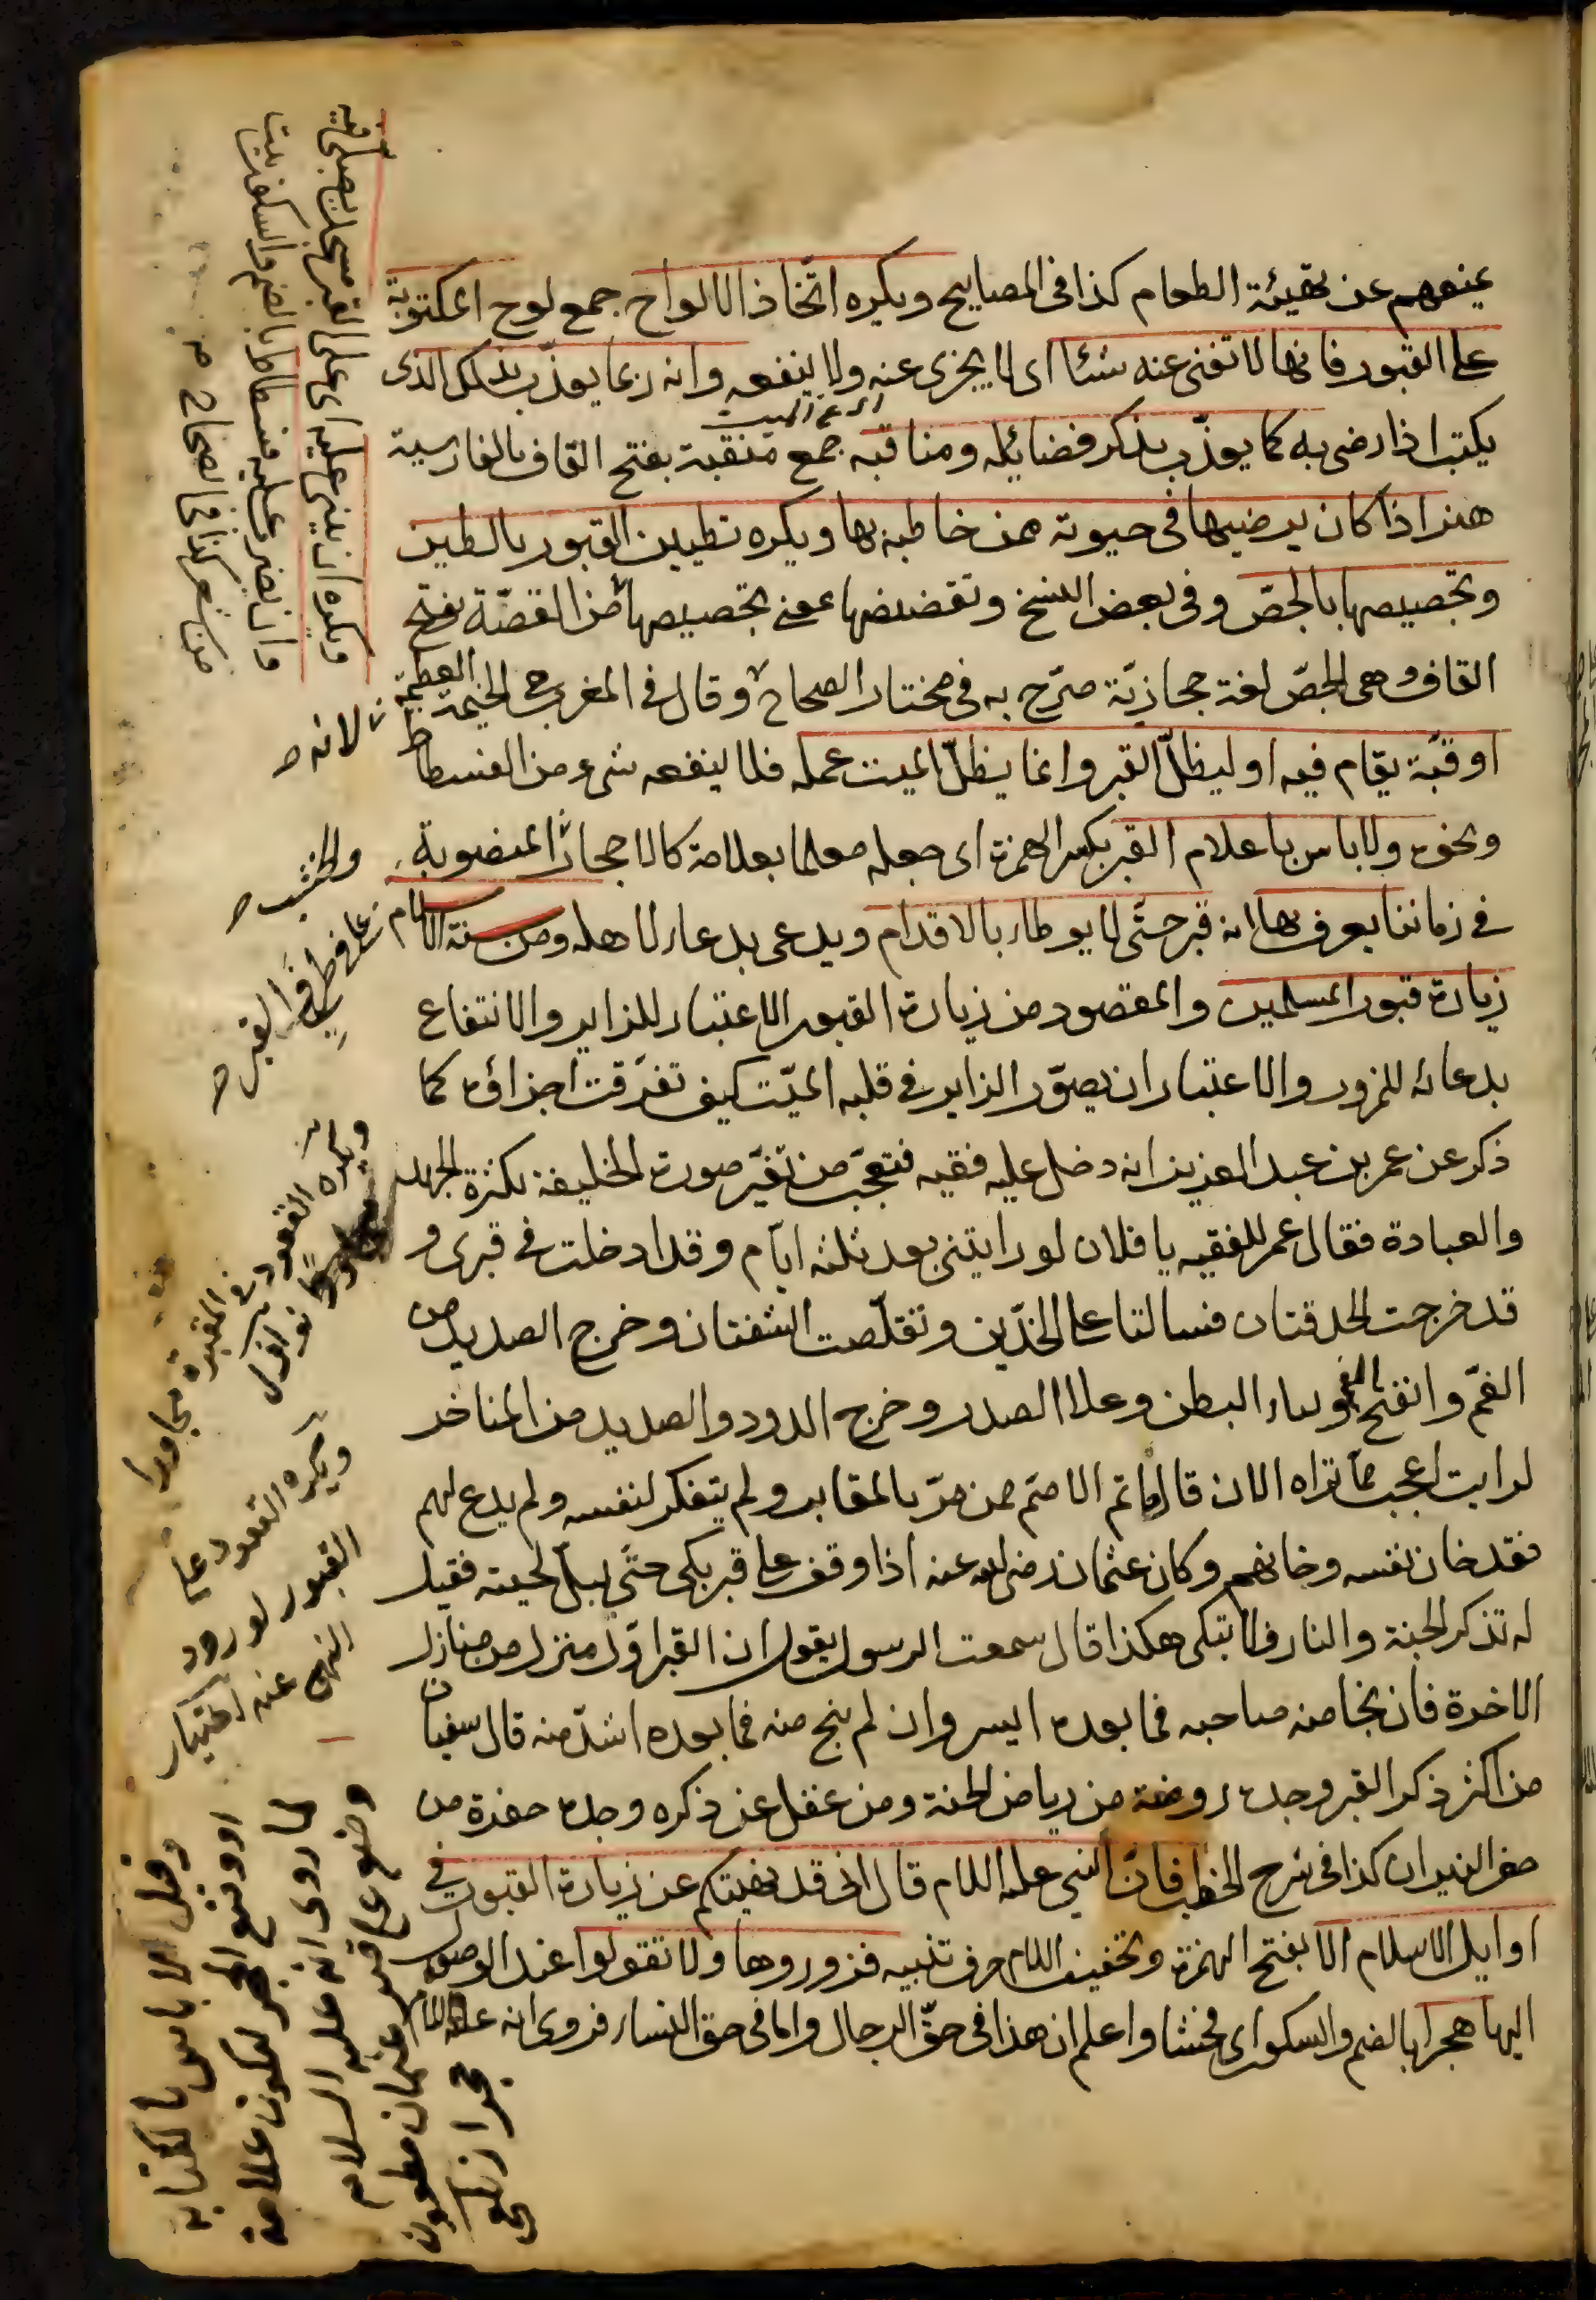 يمنعهم عن تهيئة الطعام كذا فى المصابيح ويكره اتّخاذ الالواح جمع لوح المكتوبة
على القبور فانها لا تغنى عنه شئا اى لا يجزى عنه ولا ينفعه وانه ربما يعذّب بذلك الذى
يكتب اذا رضى به كما يعذّب بذكر فضائله ومناقبه جمع منقبة بفتح القاف بالفارسية
هنر اذا كان يرضيها فى حيوته ممن خاطبه بها ويكره تطيين القبور بالطين
وتجصيصها بالجصّ وفى بعض النسخ وتقضيضها بمعنى تجصيصها من القصّة بفتح
القاف وهى الجصّ لغة حجازيّة صرّح به فى مختار الصحاح وقال فى المغرب هى الخيمة العظيمة
او قبّة يقام فيه او ليظلّ القبر وانما يظلّ الميت عمله فلا ينفعه شىء من الفسطاط
ونحوه ولا باس باعلام القبر بكسر الهمزة اى جعله معلما بعلامة كالاحجار المنصوبة
فى زماننا يعرف بها انه قبر حتّى لا يوطاء بالاقدام ويدعى بدعاء لاهله ومن سنة الاسلام
زيارة قبور المسلمين والمقصود من زيارة القبور الاعتبار للزاير والانتفاع
بدعائه للمزور والاعتبار ان يصوّر الزاير فى قلبه الميّت كيف تفرّقت اجزاؤه كما
ذكر عن عمر بن عبد العزيز انه دخل عليه فقيه فتعجّب من تغيّر صورة الخليفة بكثرة الجهد
والعبادة فقال عمر للفقيه يا فلان لو رايتنى بعد ثلثه ايّام وقد ادخلت فى قبرى و
قد خرجت الحدقتان فسالتا على الخدّين وتقلّصت الشفتان وخرج الصديد من
الفمّ وانفتح الفم وىىاء البطن وعلا الصدر وخرج الدود والصديد من المناخر
لرايت اعجب مما تراه الان قال حاتم الاصمّ من مرّ بالمقابر ولم يتفكر لنفسه ولم يدع لهم
فقد خان نفسه وخانهم وكان عثمان رضى الله عنه اذا وقف على قبر بكى حتّى يبلّ لحيته فقيل
له تذكر الجنة والنار فلا تبكى هكذا قال سمعت الرسول يقول ان القبر اوّل منزل من منازل
الاخرة فان نجا منه صاحبه فما بعده ايسر وان لم ينج منه فما بعده اشدّ منه قال سفيان
من اكثر ذكر القبر وجده روضة من رياض الجنة ومن غفل عن ذكره وجده حفرة من
حفر النيران كذا فى شرح الخطب فانّ النبى عليه السلام قال انى قد نهيتكم عن زيارة القبور فى
اوايل الاسلام الا بفتح الهمزة وتخفيف اللام حرف تنبيه فزوروها ولا تقولوا عند الوصول
اليها هجرا بالضم والسكون اى فحشا واعلم ان هذا فى حقّ الرجال واما فى حق النساء فروى انه عليه السلام
ويكره ان يبنى عليه اى على القبر مسجد يصلى فيه
وان يضرب عليه فسطاط بالضم والسكون بيت
من شعر كذا فى الصحاح
لانه
والخشب
القبر
ويكره القعود فى المقبرة مجاورا
ويكره القعود على
القبور لورود
النهى عنه اختيار
وقيل لا باس بالكتابة
او وضع الحجر ليكون علامة
لما روى انه عليه السلام
وضع على قبر عثمان مظعون
حجرا